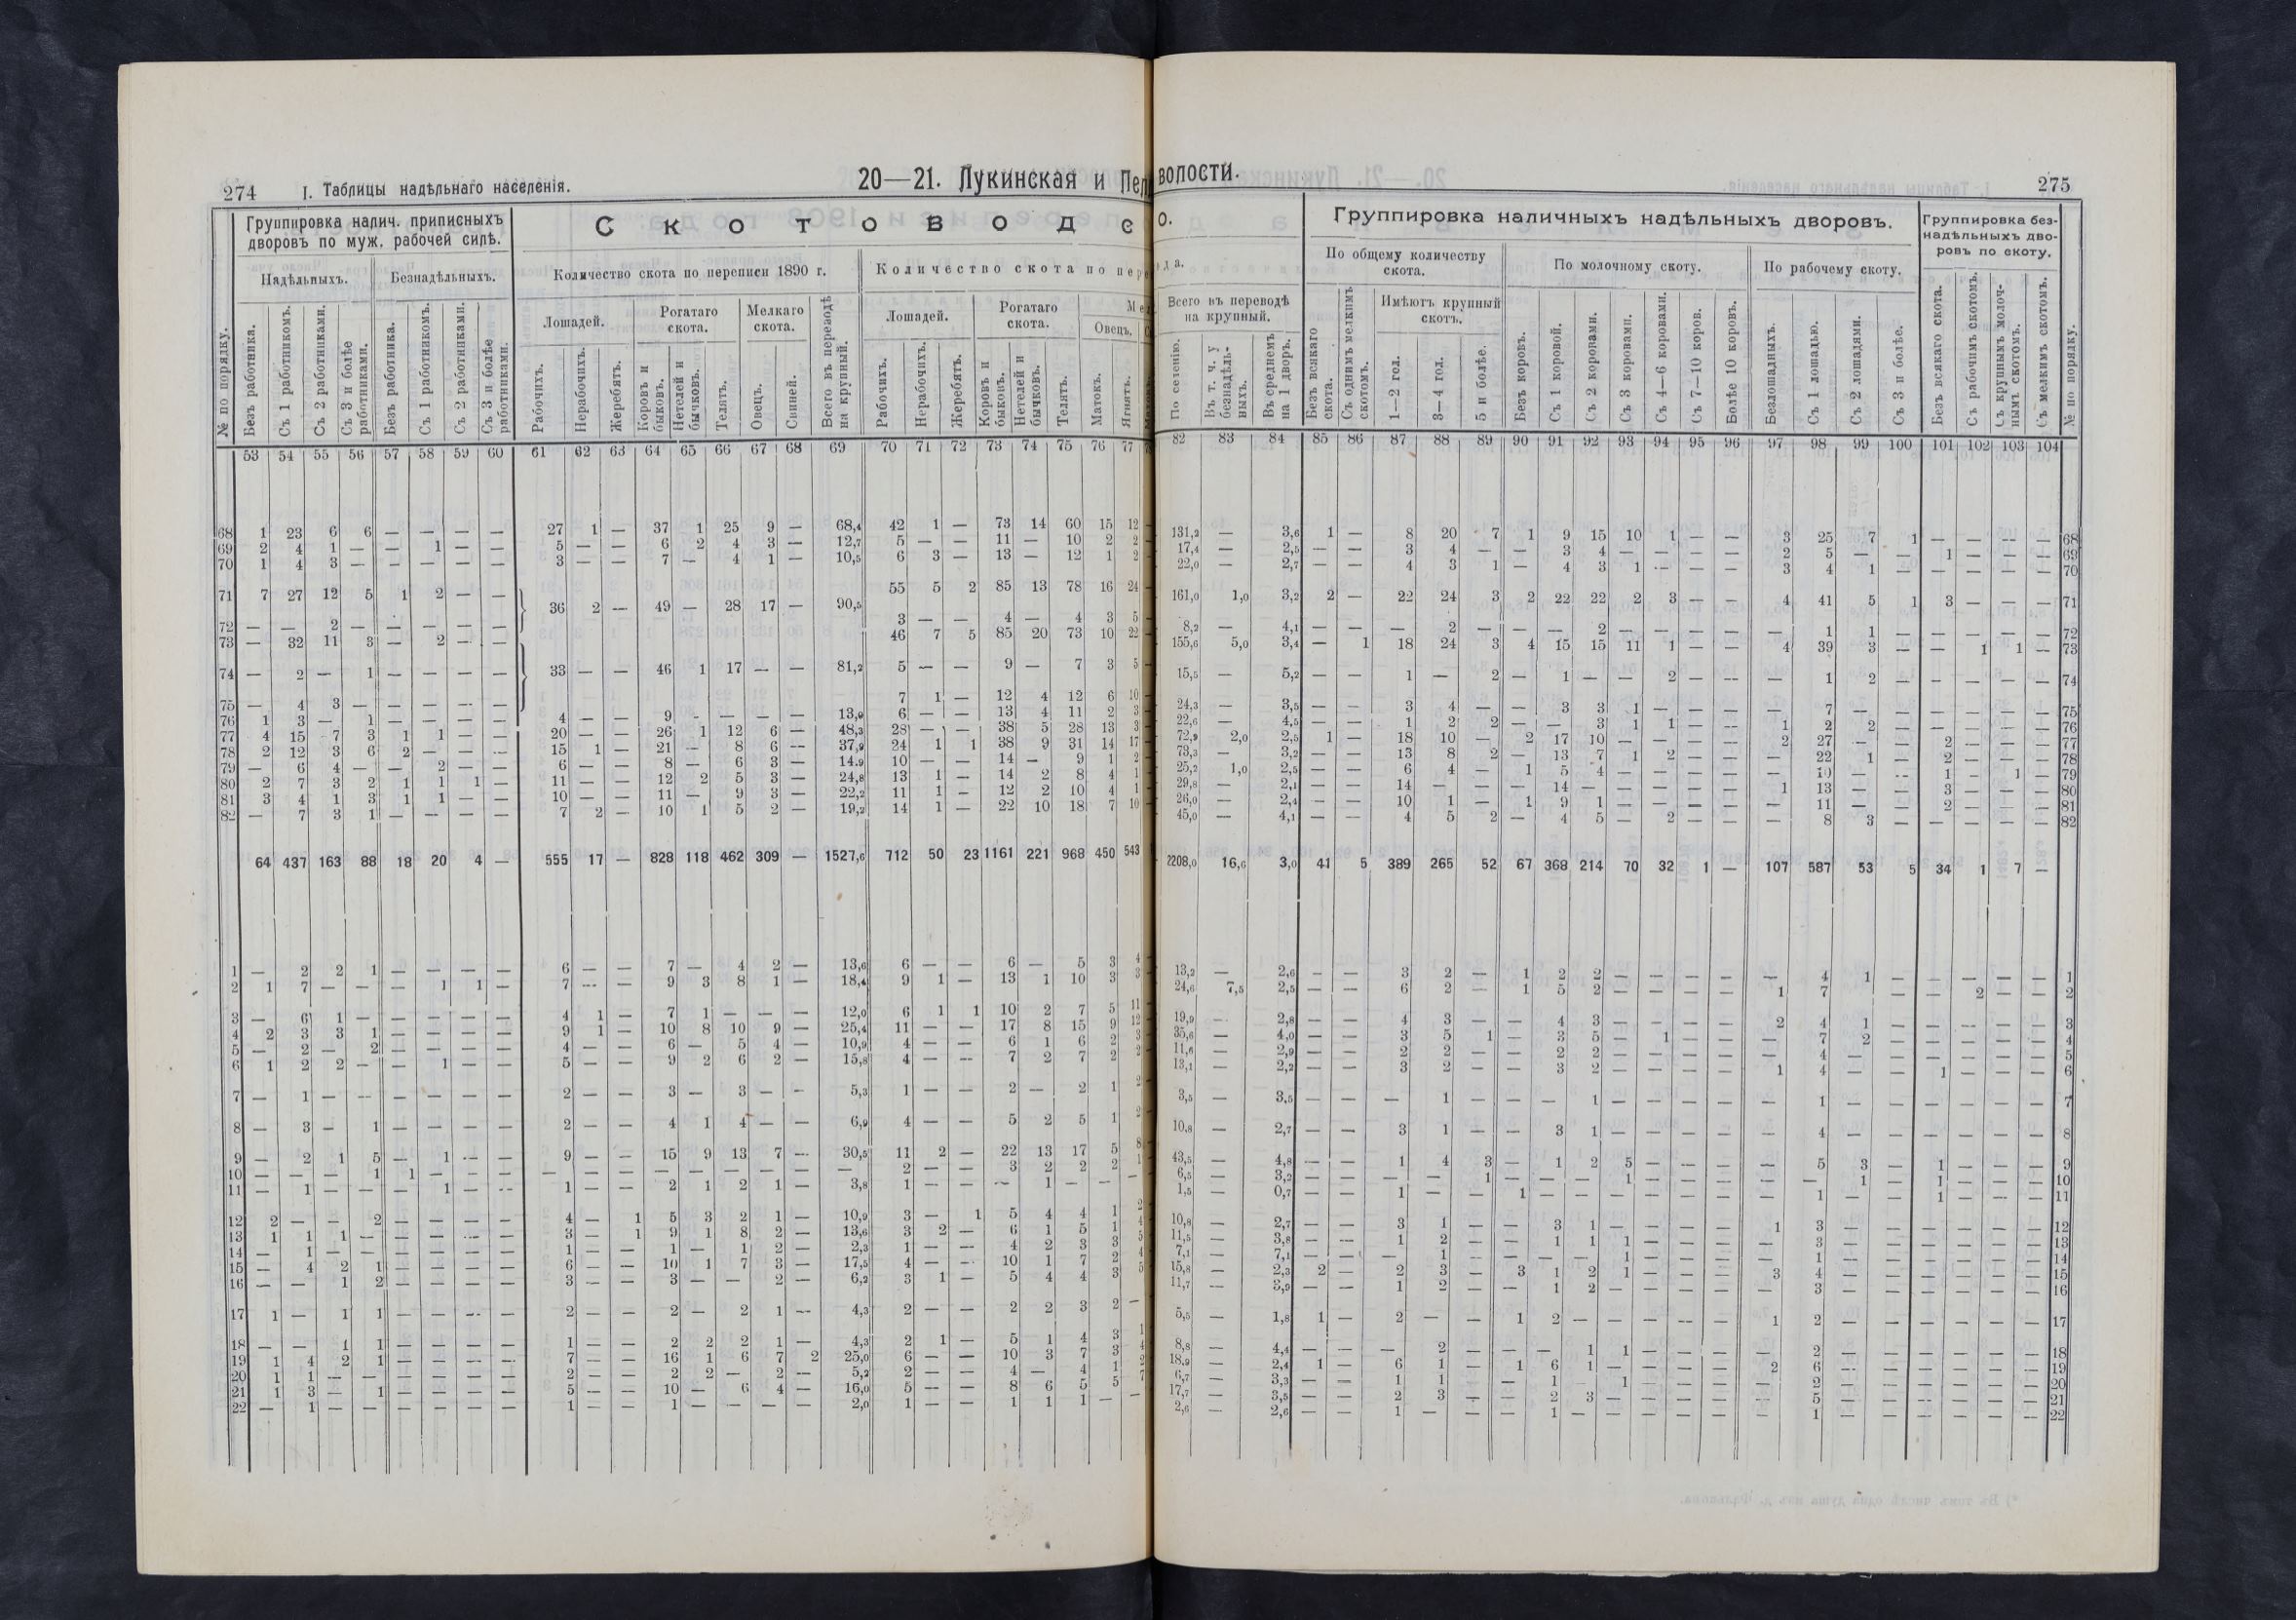 274 I. Таблицы надѣльнаго населенія.
20—21. Лукинская и Пел
Группировка налич. приписныхъ дворовъ по муж. рабочей силѣ.
Надѣльныхъ. Безнадѣльныхъ.
С к о т о в о д с
Количество скота по переписи 1890 г.
Количество скота по пере
Лошадей. Рогатаго скота. Мелкаго скота. Лошадей. Рогатаго скота. Ме
Овецъ.
№ по порядку. Безъ работника. Съ 1 работникомъ. Съ 2 работниками. Съ 3 и болѣе работниками. Безъ работника. Съ 1 работникомъ. Съ 2 работниками. Съ 3 и болѣе работниками. Рабочихъ. Нерабочихъ. Жеребятъ. Коровъ и быковъ. Нетелей и бычковъ. Телятъ. Овецъ. Свиней. Всего въ переводѣ на крупный. Рабочихъ. Нерабочихъ. Жеребятъ. Коровъ и быковъ. Нетелей и бычковъ. Телятъ. Матокъ. Ягнятъ.
53 54 55 56 57 58 59 60 61 62 63 64 65 66 67 68 69 70 71 72 73 74 75 76 77
68 1 23 6 6 — — — — 27 1 — 37 1 25 9 — 68,4 42 1 — 73 14 60 15 12
69 2 4 1 — — 1 — — 5 — — 6 2 4 3 — 12,7 5 — — 11 — 10 2 2
70 1 4 3 — — — — — 3 — — 7 — 4 1 — 10,5 6 3 — 13 — 12 1 2
71 7 27 12 5 1 2 — — 36 2 — 49 — 28 17 — 90,5 55 5 2 85 13 78 16 24
72 — — 2 — — — — — 3 — — 4 — 4 3 5
73 — 32 11 3 — 2 — — 46 7 5 85 20 73 10 22
74 — 2 — 1 — — — — 33 — — 46 1 17 — — 81,2 5 — — 9 — 7 3 5
75 — 4 3 — — — — — 7 1 — 12 4 12 6 10
76 1 3 — 1 — — — — 4 — — 9 — — — — 13,0 6 — — 13 4 11 2 3
77 4 15 7 3 1 1 — — 20 — — 26 1 12 6 — 48,3 28 — — 38 5 28 13 3
78 2 12 3 6 2 — — — 15 1 — 21 — 8 6 — 37,9 24 1 1 38 9 31 14 17
79 — 6 4 — — 2 — — 6 — — 8 — 6 3 — 14.9 10 — — 14 — 9 1 2
80 2 7 3 2 1 1 1 — 11 — — 12 2 5 3 — 24,8 13 1 — 14 2 8 4 1
81 3 4 1 3 1 1 — — 10 — — 11 — 9 3 — 22,2 11 1 — 12 2 10 4 1
82 — 7 3 1 — — — — 7 2 — 10 1 5 2 — 19,2 14 1 — 22 10 18 7 10
64 437 163 88 18 20 4 — 555 17 — 828 118 462 309 — 1527,6 712 50 23 1161 221 968 450 543
1 — 2 2 1 — — — — 6 — — 7 — 4 2 — 13,6 6 — — 6 — 5 3 4
2 1 7 — — — 1 1 — 7 — — 9 3 8 1 — 18,4 9 1 — 13 1 10 3 3
3 — 6 1 — — — — — 4 1 — 7 1 — — — 12,0 6 1 1 10 2 7 5 11
4 2 3 3 1 — — — — 9 1 — 10 8 10 9 — 25,4 11 — — 17 8 15 9 12
5 — 2 — 2 — — — — 4 — — 6 — 5 4 — 10,9 4 — — 6 1 6 2 3
6 1 2 2 — — 1 — — 5 — — 9 2 6 2 — 15,8 4 — — 7 2 7 2 2
7 — 1 — — — — — — 2 — — 3 — 3 — — 5,3 1 — — 2 — 2 1 2
8 — 3 — 1 — — — — 2 — — 4 1 4 — — 6,9 4 — — 5 2 5 1 2
9 — 2 1 5 — 1 — — 9 — — 15 9 13 7 — 30,5 11 2 — 22 13 17 5 8
10 — — — 1 1 — — — — — — — — — — — — 2 — — 3 2 2 2 1
11 — 1 — — — 1 — — 1 — — 2 1 2 1 — 3,8 1 — — — 1 — — —
12 2 — — 2 — — — — 4 — 1 5 3 2 1 — 10,9 3 — 1 5 4 4 1 2
13 1 1 1 — — — — — 3 — 1 9 1 8 2 — 13,6 3 2 — 6 1 5 1 4
14 — 1 — — — — — — 1 — — 1 — 1 2 — 2,3 1 — — 4 2 3 3 5
15 — 4 2 1 — — — — 6 — — 10 1 7 3 — 17,5 4 — — 10 1 7 2 4
16 — — 1 2 — — — — 3 — — 3 — — 2 — 6,2 3 1 — 5 4 4 3 5
17 1 — 1 1 — — — — 2 — — 2 — 2 1 — 4,3 2 — — 2 2 3 2 —
18 — — 1 1 — — — — 1 — — 2 2 2 1 — 4,3 2 1 — 5 1 4 3 1
19 1 4 2 1 — — — — 7 — — 16 1 6 7 2 25,0 6 — — 10 3 7 3 4
20 1 1 — — — — — — 2 — — 2 2 — 2 — 5,2 2 — — 4 — 4 1 2
21 1 3 — 1 — — — — 5 — — 10 — 6 4 — 16,0 5 — — 8 6 5 5 7
22 — 1 — — — — — — 1 — — 1 — — — — 2,0 1 — — 1 1 1 — —
волости. 275
о. Группировка наличныхъ надѣльныхъ дворовъ. Группировка безнадѣльныхъ дворовъ по скоту.
да. По общему количеству скота. По молочному скоту. По рабочему скоту.
Всего въ переводѣ на крупный. Имѣютъ крупный скотъ.
По селенію. Въ т. ч. у безнадѣльныхъ. Въ среднемъ на 1 дворъ. Безъ всякаго скота. Съ однимъ мелкимъ скотомъ. 1—2 гол. 3—4 гол. 5 и болѣе. Безъ коровъ. Съ 1 коровой. Съ 2 коровами. Съ 3 коровами. Съ 4—6 коровами. Съ 7—10 коров. Болѣе 10 коровъ. Безлошадныхъ. Съ 1 лошадью. Съ 2 лошадями. Съ 3 и болѣе. Безъ всякаго скота. Съ рабочимъ скотомъ. Съ крупнымъ молочнымъ скотомъ. Съ мелкимъ скотомъ. № по порядку.
82 83 84 85 86 87 88 89 90 91 92 93 94 95 96 97 98 99 100 101 102 103 104
131,2 — 3,6 1 — 8 20 7 1 9 15 10 1 — — 3 25 7 1 — — — — 68
17,4 — 2,5 — — 3 4 — — 3 4 — — — — 2 5 — — 1 — — — 69
22,0 — 2,7 — — 4 3 1 — 4 3 1 — — — 3 4 1 — — — — — 70
161,0 1,0 3,2 2 — 22 24 3 2 22 22 2 3 — — 4 41 5 1 3 — — — 71
8,2 — 4,1 — — — 2 — — — 2 — — — — — 1 1 — — — — — 72
155,6 5,0 3,4 — 1 18 24 3 4 15 15 11 1 — — 4 39 3 — — 1 1 — 73
15,5 — 5,2 — — 1 — 2 — 1 — — 2 — — — 1 2 — — — — — 74
24,3 — 3,5 — — 3 4 — — 3 3 1 — — — — 7 — — — — — — 75
22,6 — 4,5 — — 1 2 2 — — 3 1 1 — — 1 2 2 — — — — — 76
72,9 2,0 2,5 1 — 18 10 — 2 17 10 — — — — 2 27 — — 2 — — — 77
73,3 — 3,2 — — 13 8 2 — 13 7 1 2 — — — 22 1 — 2 — — — 78
25,2 1,0 2,5 — — 6 4 — 1 5 4 — — — — — 10 — — 1 — 1 — 79
29,8 — 2,1 — — 14 — — — 14 — — — — — 1 13 — — 3 — — — 80
26,0 — 2,4 — — 10 1 — 1 9 1 — — — — — 11 — — 2 — — — 81
45,0 — 4,1 — — 4 5 2 — 4 5 — 2 — — — 8 3 — — — — — 82
2208,0 16,6 3,0 41 5 389 265 52 67 368 214 70 32 1 — 107 587 53 5 34 1 7 —
13,2 — 2,6 — — 3 2 — 1 2 2 — — — — — 4 1 — — — — — 1
24,6 7,5 2,5 — — 6 2 — 1 5 2 — — — — 1 7 — — — 2 — — 2
19,9 — 2,8 — — 4 3 — — 4 3 — — — — 2 4 1 — — — — — 3
35,6 — 4,0 — — 3 5 1 — 3 5 — 1 — — — 7 2 — — — — — 4
11,6 — 2,9 — — 2 2 — — 2 2 — — — — — 4 — — — — — — 5
13,1 — 2,2 — — 3 2 — — 3 2 — — — — 1 4 — — 1 — — — 6
3,5 — 3,5 — — — 1 — — — 1 — — — — — 1 — — — — — — 7
10,8 — 2,7 — — 3 1 — — 3 1 — — — — — 4 — — — — — — 8
43,5 — 4,8 — — 1 4 3 — 1 2 5 — — — — 5 3 — 1 — — — 9
6,5 — 3,2 — — — — 1 — — — 1 — — — — — 1 — 1 — — — 10
1,5 — 0,7 — — 1 — — 1 — — — — — — — 1 — — 1 — — — 11
10,8 — 2,7 — — 3 1 — — 3 1 — — — — 1 3 — — — — — — 12
11,5 — 3,8 — — 1 2 — — 1 1 1 — — — — 3 — — — — — — 13
7,1 — 7,1 — — — 1 — — — — 1 — — — — 1 — — — — — — 14
15,8 — 2,3 2 — 2 3 — 3 1 2 1 — — — 3 4 — — — — — — 15
11,7 — 3,9 — — 1 2 — — 1 2 — — — — — 3 — — — — — — 16
5,5 — 1,8 1 — 2 — — 1 2 — — — — — 1 2 — — — — — — 17
8,8 — 4,4 — — — 2 — — — 1 1 — — — — 2 — — — — — — 18
18,9 — 2,4 1 — 6 1 — 1 6 1 — — — — 2 6 — — — — — — 19
6,7 — 3,3 — — 1 1 — — 1 — 1 — — — — 2 — — — — — — 20
17,7 — 3,5 — — 2 3 — — 2 3 — — — — — 5 — — — — — — 21
2,6 — 2,6 — — 1 — — — 1 — — — — — — 1 — — — — — — 22